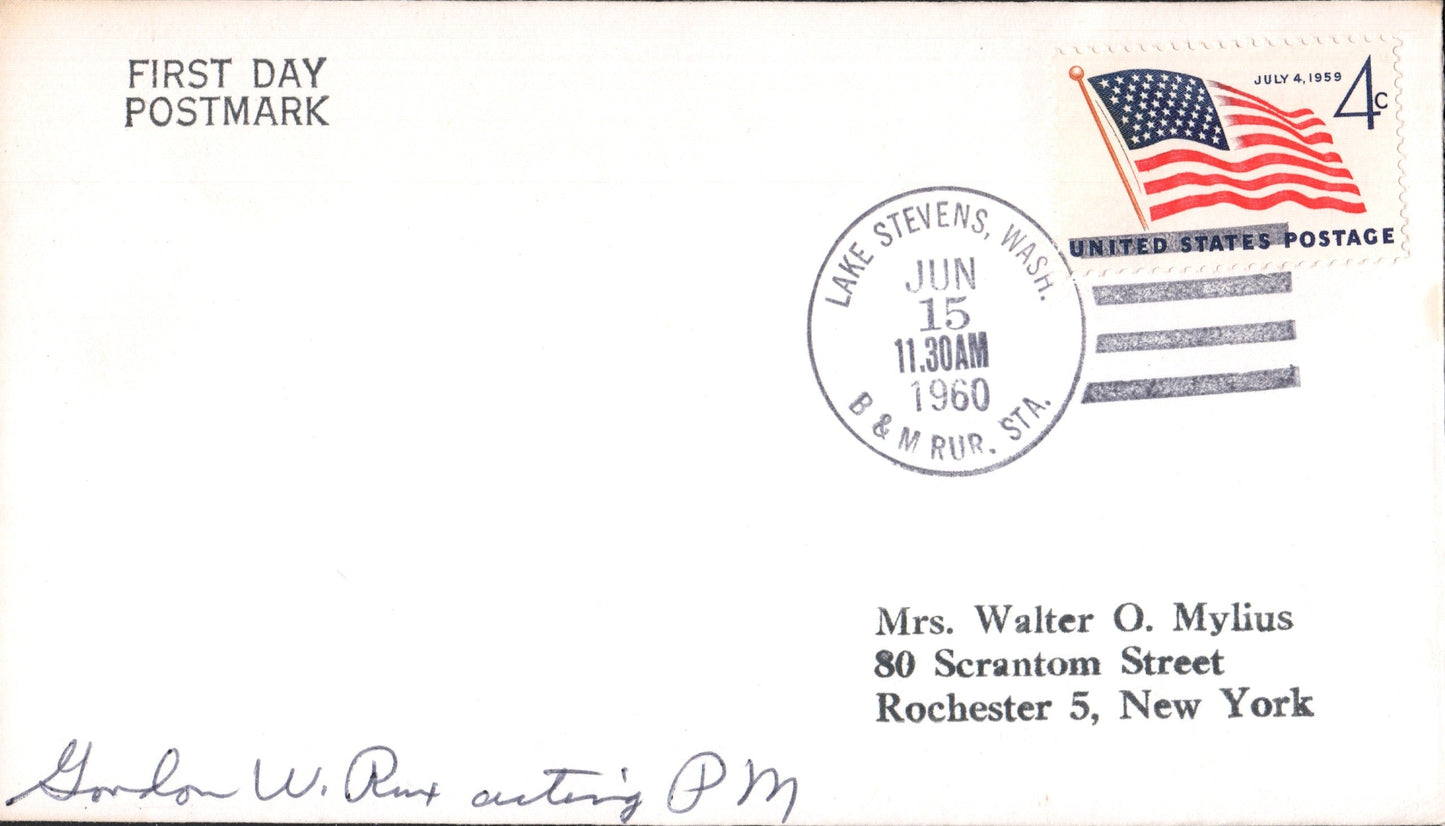 FIRST DAY
POSTMARK
JULY 4, 1959
4c
UNITED STATES POSTAGE
LAKE STEVENS, WASH.
JUN
15
11.30AM
1960
B & M RUR. STA.
Mrs. Walter O. Mylius
80 Scrantom Street
Rochester 5, New York
Gordon W. Rux acting PM